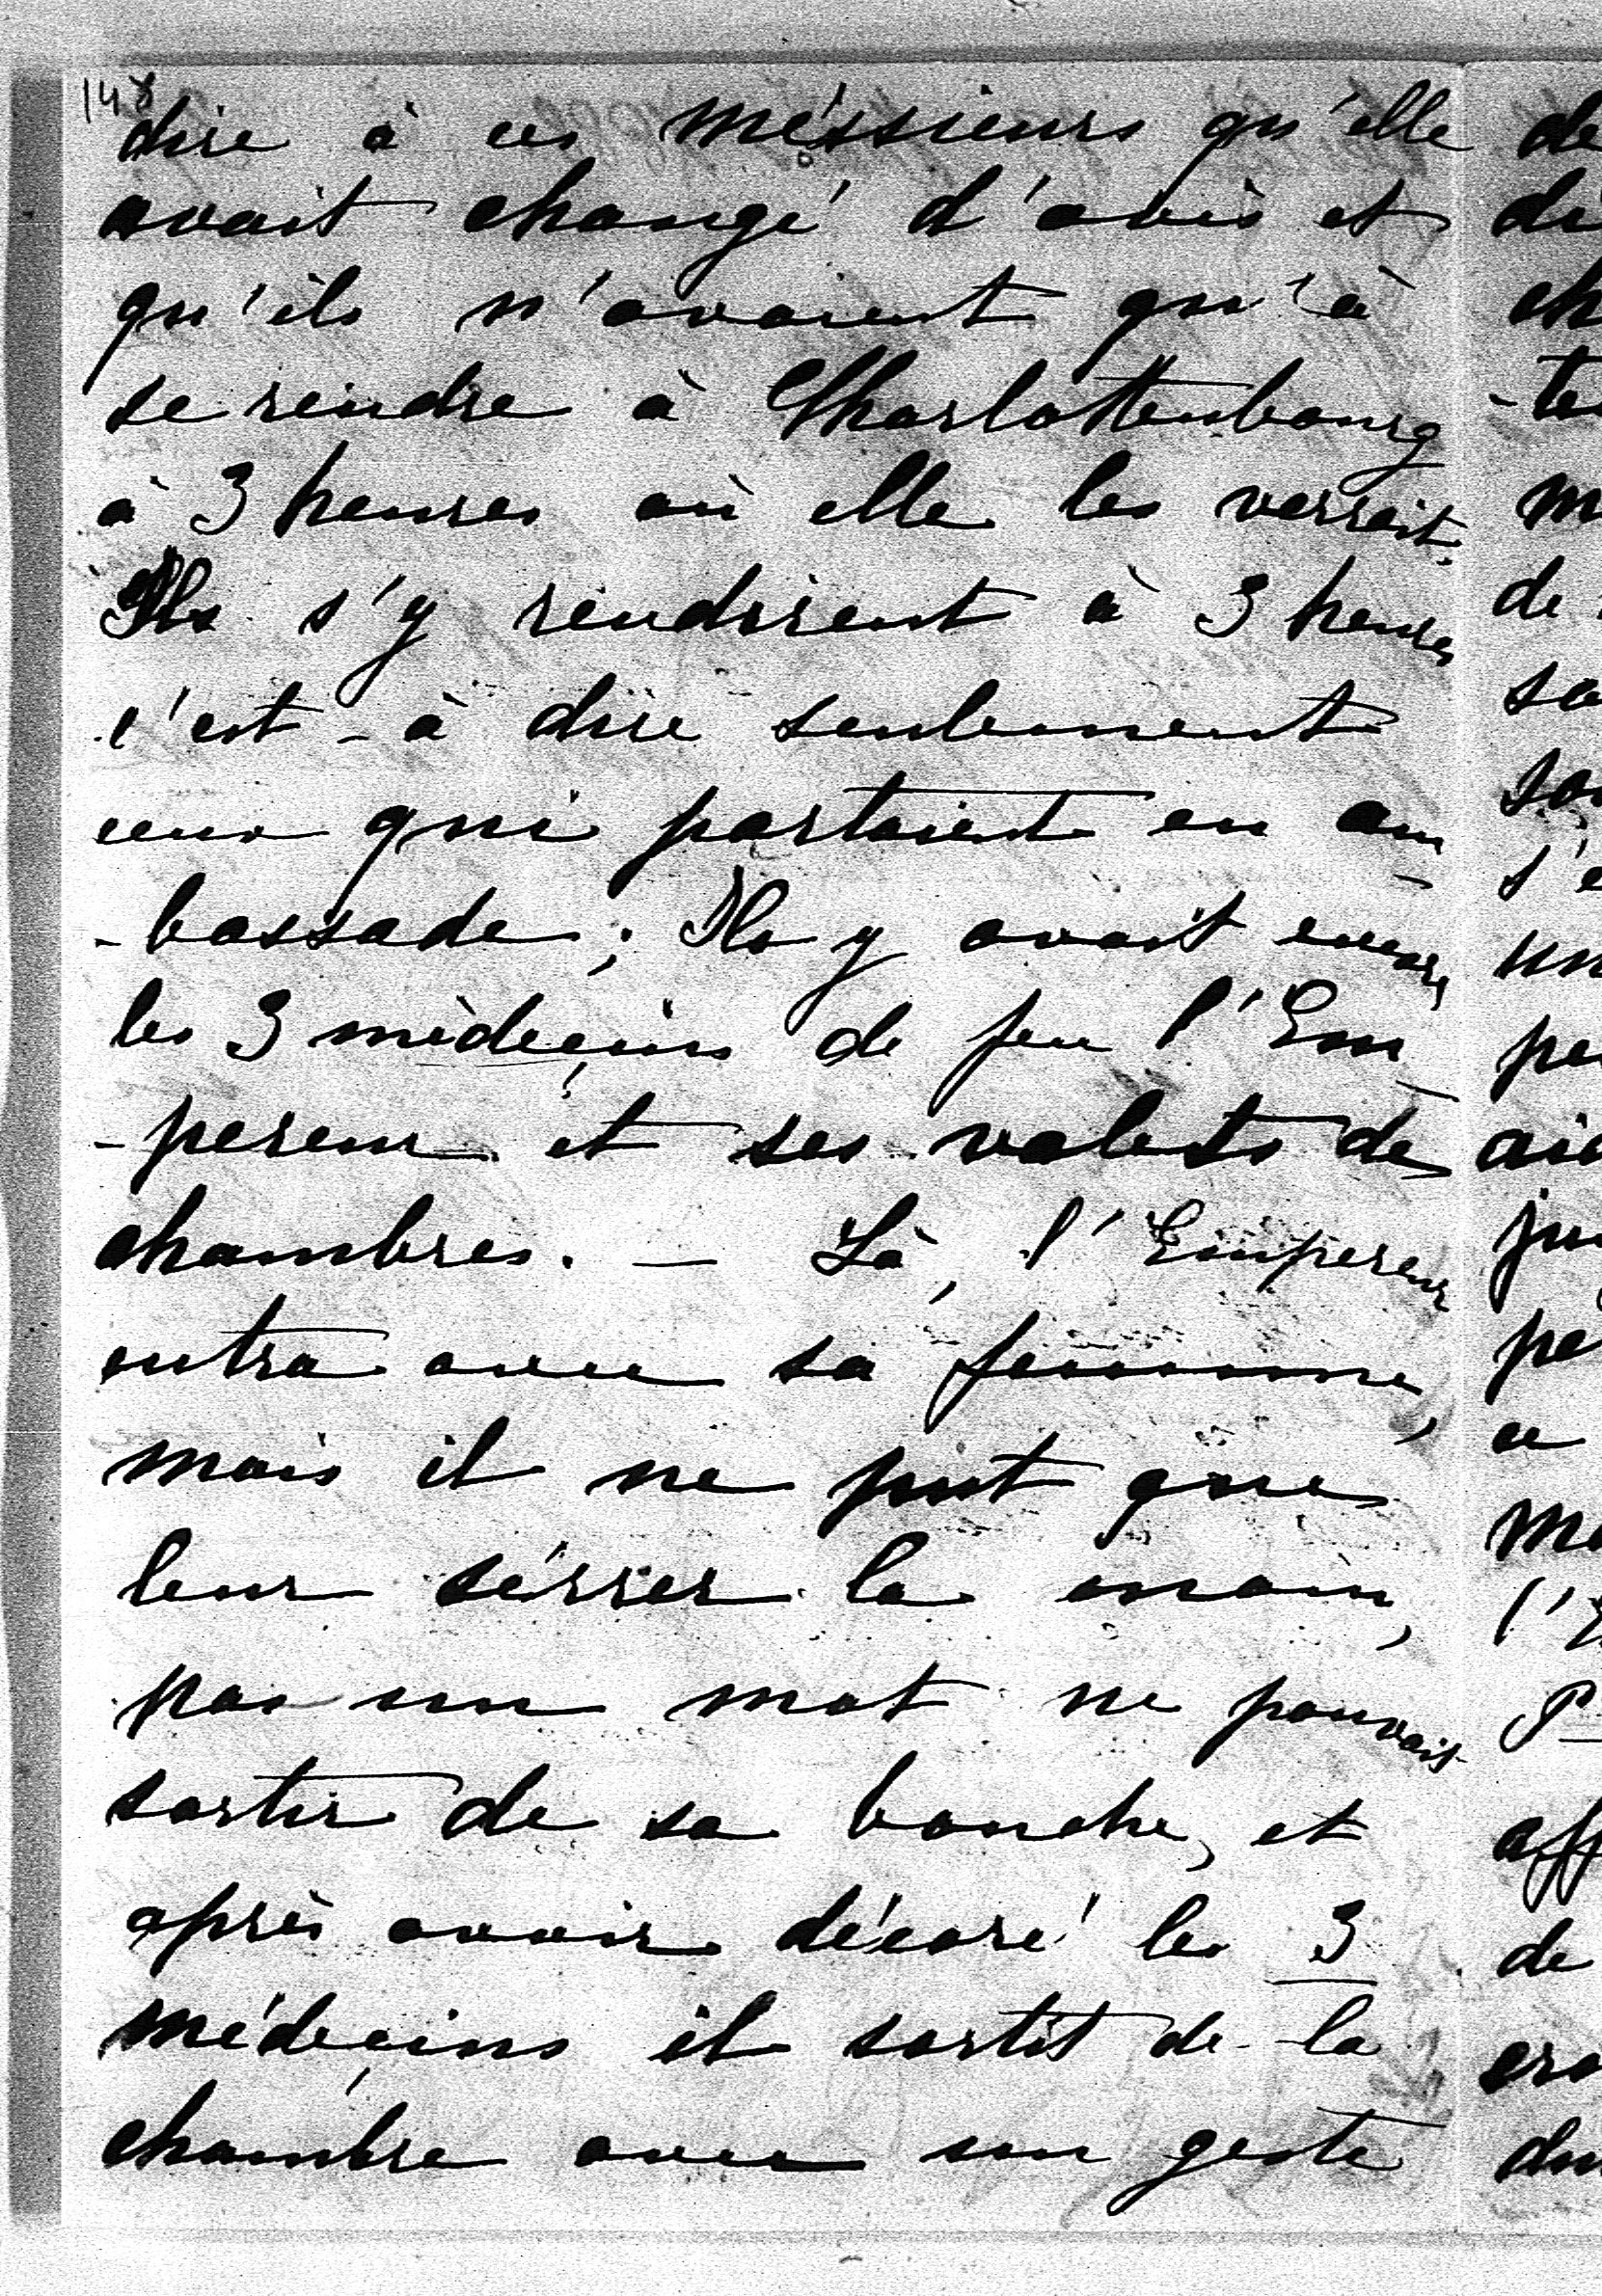 148
dire à ces méssieurs qu'elle
avait changé d'avis et
qu'ils n'avaient qu'à
se rendre à Charlottenbourg
à 3 heures où elle les verrait.
Ils s'y rendirent à 3 heures
c'est-à dire seulement
ceux qui partaient en am
-bassade; Ils y avait encore
les 3 mèdeçins de feu l'Em
-pereur et ses valets de
chambres. — Là, l'Empereur
entra avec sa femme,
mais il ne put que
leur sérrer la main,
pas un mot ne pouvait
sortir de sa bouche, et
après avoir décoré les 3
médeçins il sortit de la
chambre avec un geste